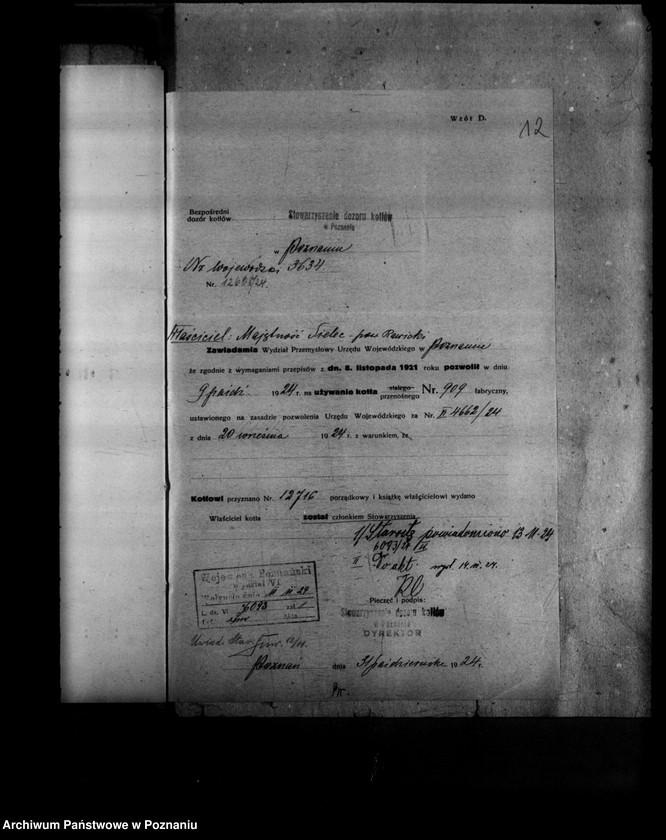 Wzór D.
12
Bezpośredni
dozór kotłów
Stowarzyszenie dozoru kotłów
w Poznaniu
w Poznaniu
Nr. wojewódzki 3634
Nr.
Właściciel: Majętność pow. Rawicki
Zawiadamia Wydział Przemysłowy Urzędu Wojewódzkiego w Poznaniu
że zgodnie z wymaganiami przepisów z dn. 8. listopada 1921 roku pozwolił w dniu
9 paźdź 1924 r. na używanie kotła stałego przenośnego Nr. 909 fabryczny,
ustawionego na zasadzie pozwolenia Urzędu Wojewódzkiego za Nr. II 4662/24
z dnia 20 września 1924 r. z warunkiem, że
Kotłowi przyznano Nr. 12716 porządkowy i książkę właścicielowi wydano
Właściciel kotła został członkiem Stowarzyszenia
1/ Starostę powiadomiono 13-11-24
6093/24 VI
II Do akt
Pieczęć i podpis:
Stowarzyszenie dozoru kotłów
w Poznaniu
DYREKTOR
Wojewoda Poznański
Wydział VI
Wpłynęło dnia 11 XI 24
L. dz. VI 6093 zał.
Poznań dnia 31 października 1924 r.